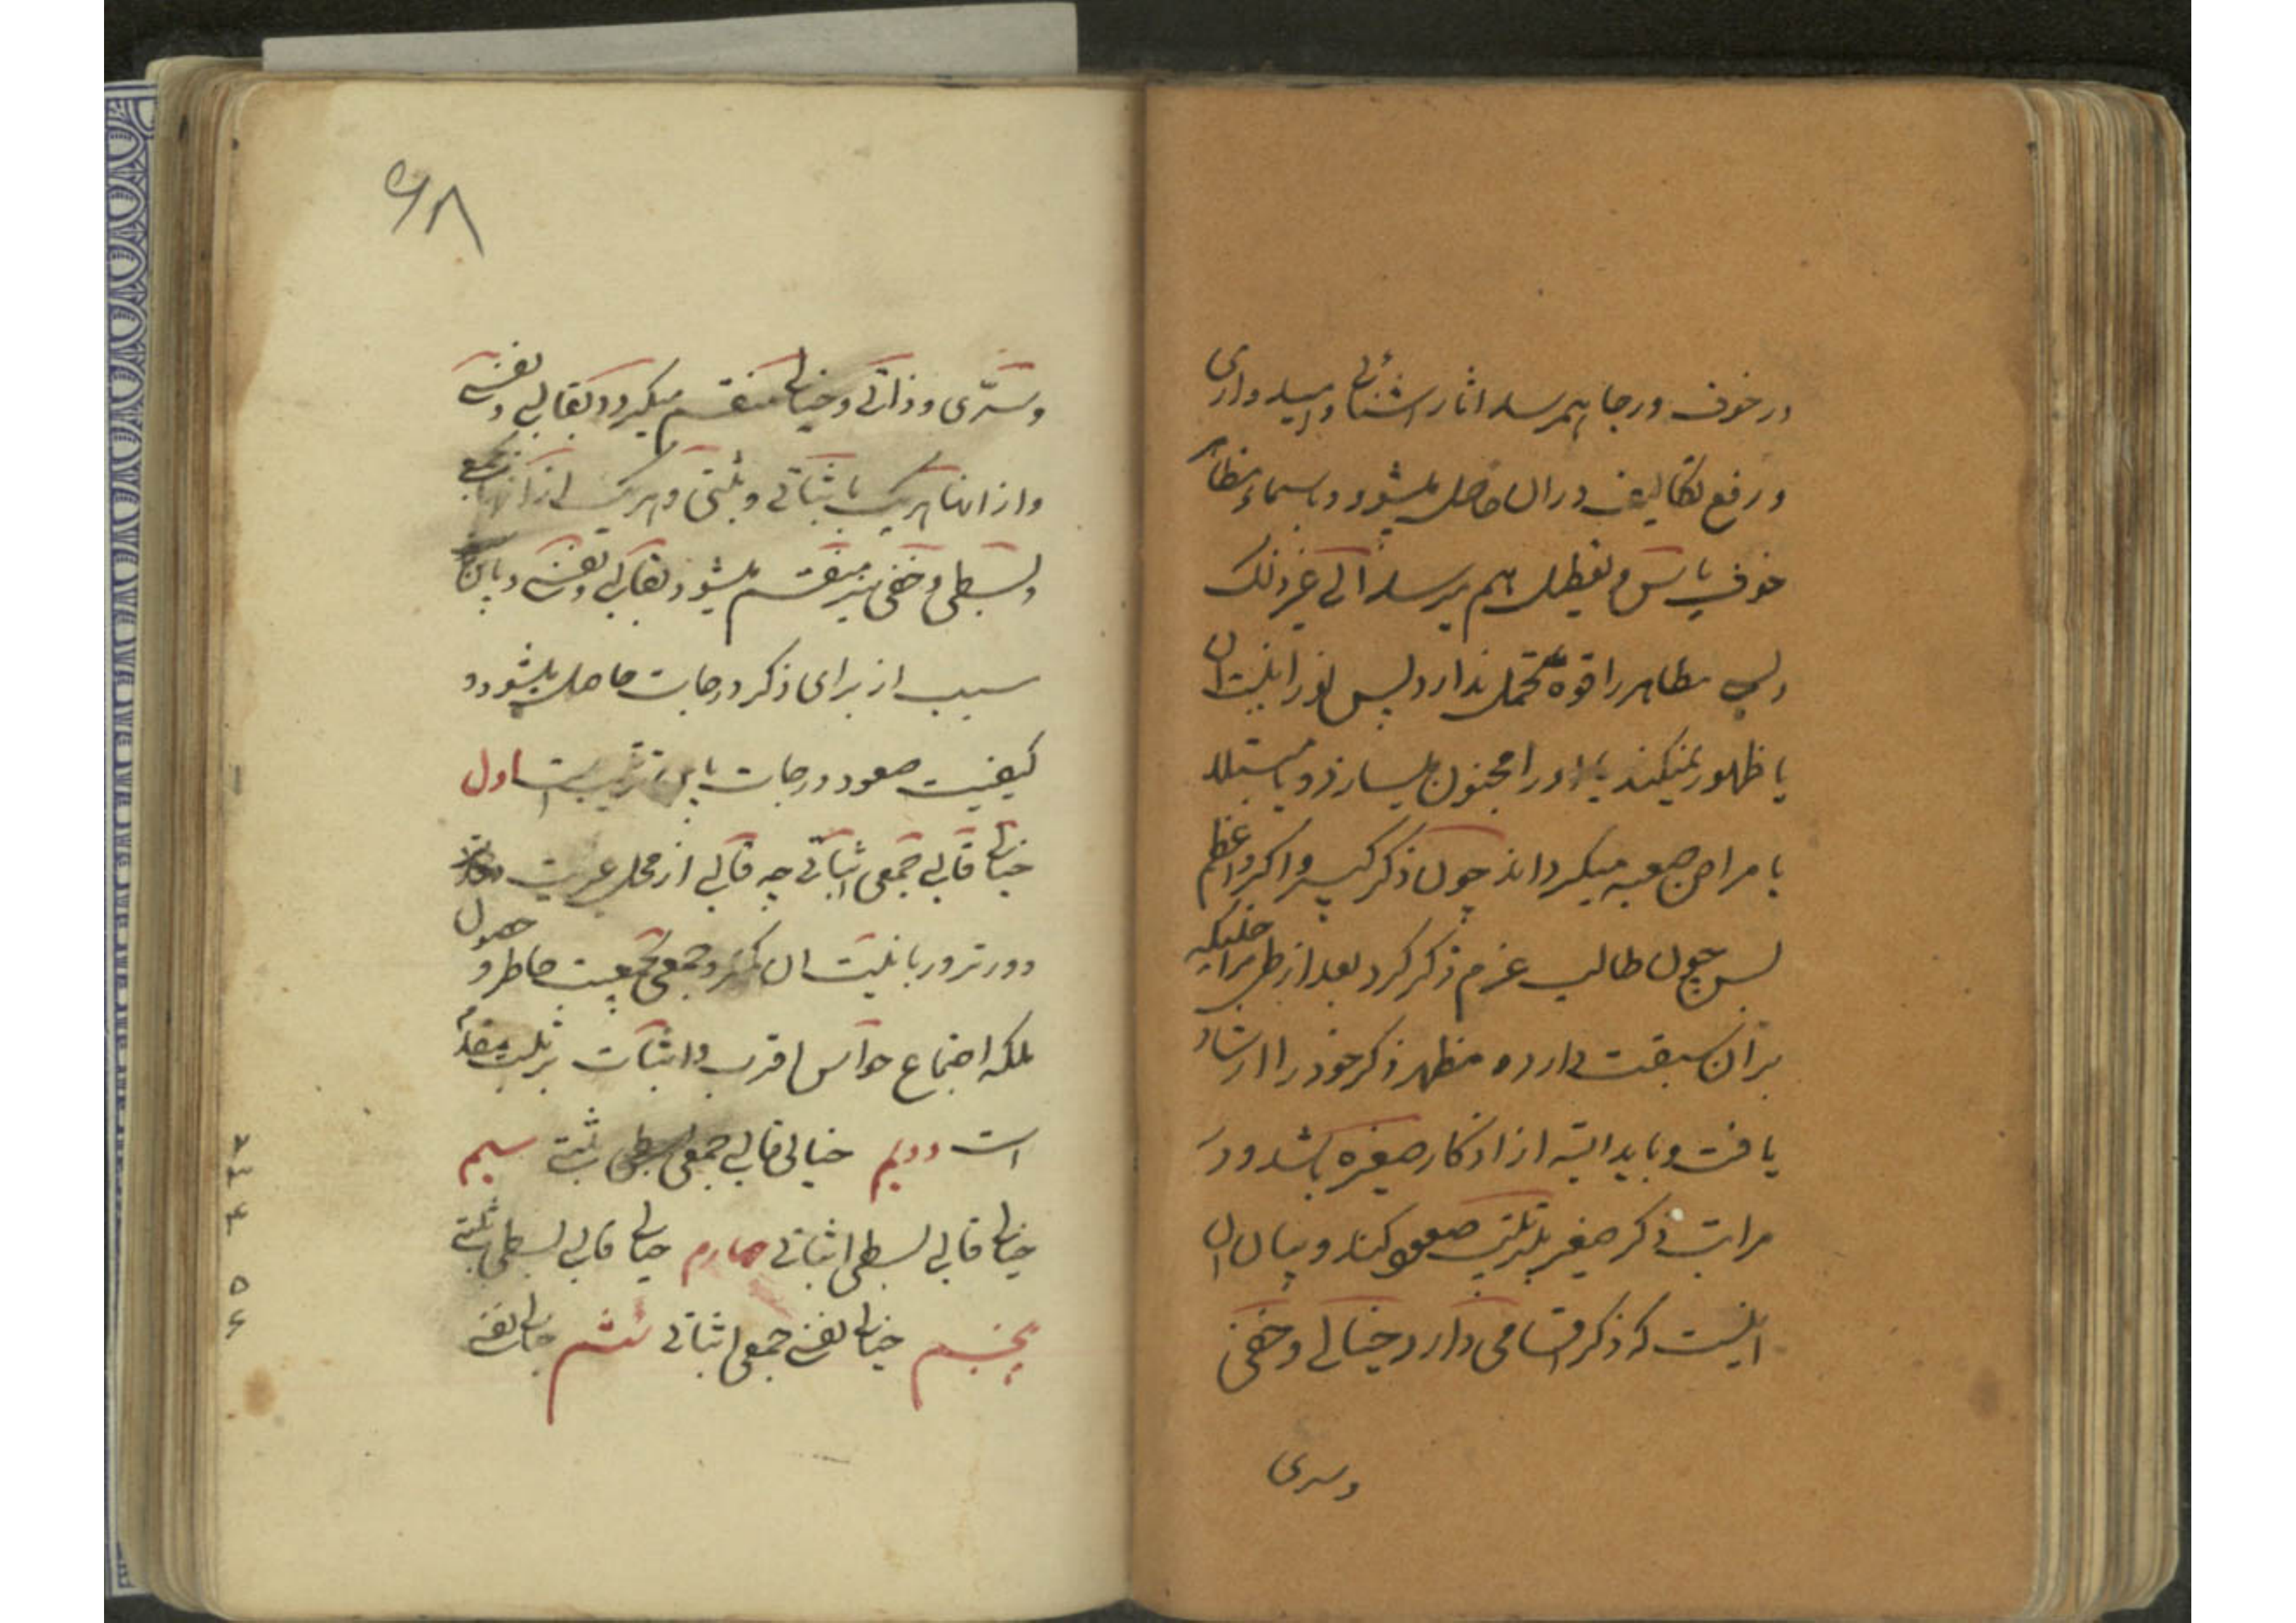 در خوف و رجا بهم رسد اثار اشنائی و امیدواری
و رفع تکالیف در ان حاصل میشود و باسماء
خوف یاس و تعطیل بهم میرسد الی غیر ذلک
مظاهر را قوه تحمل ندارد پس نور انیت ان
یا ظهور نمیکند یا او را مجنون میسازد و یا مبتلا
بامراض صعبه میکرداند چون ذکر کبیر و اکبر و اعظم
پس چون طالب عزم ذکر کرد بعد از
بران سبقت دارد و مظهر ذکر خود را ارشاد
یافت و باید البته از اذکار صغیره باشد و در
مراتب ذکر صغیر بترتیب صعود کند و بیان ان
اینست که ذکر اقسامی دارد خیالی و خفی
وسری
۶۸
و سری و ذاتی و خیالی منقسم میکردد بقالبی و نفسی
و از اینها هریک باثباتی و ثبتی و هریک از انها بجمعی
و بسطی و خفی نیز منقسم میشود بقالبی و نفسی و باین
سبب از برای ذکر درجات حاصل میشود و
کیفیت صعود درجات باین ترتیب است اول
خیالی قالبی جمعی اثباتی چه قالبی از محل
دورتر و ربانیت ان کمتر و جمعی بجمعیت خاطر و حصول
ملکه اجتماع حواس اقرب و اثبات بر ثبت مقدم
است دویم خیالی قالبی جمعی ثبتی سیم
خیالی قالبی بسطی اثباتی چهارم خیالی قالبی بسطی ثبتی
پنجم خیالی نفسی جمعی اثباتی ششم خیالی نفسی
۲
۳
۴
۵
۶